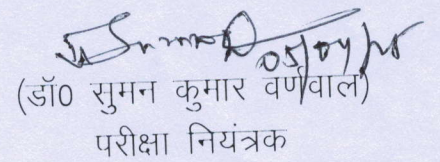 05/04/25
(डॉ0 सुमन कुमार वर्णवाल)
परीक्षा नियंत्रक